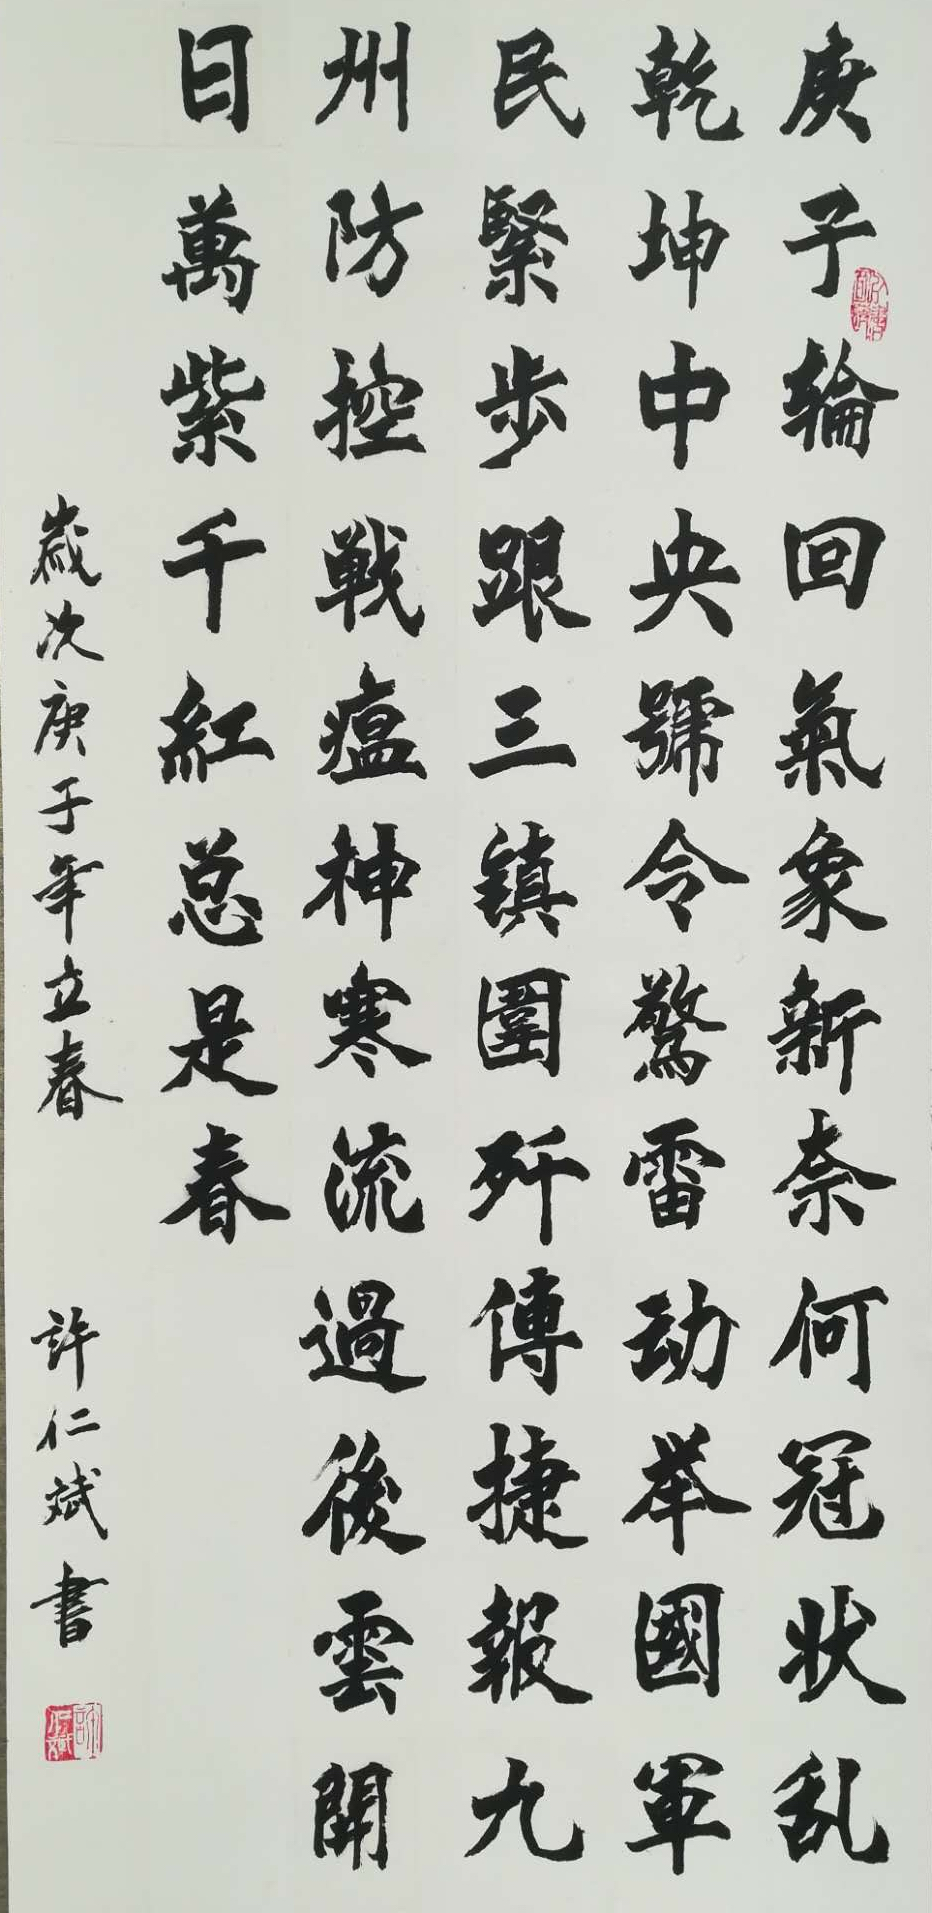 庚子輪回氣象新奈何冠状乱
乾坤中央號令驚雷动举國軍
民緊步跟三镇圍歼傳捷報九
州防控戦瘟神寒流過後雲開
日萬紫千紅总是春
歲次庚子年立春 許仁斌書